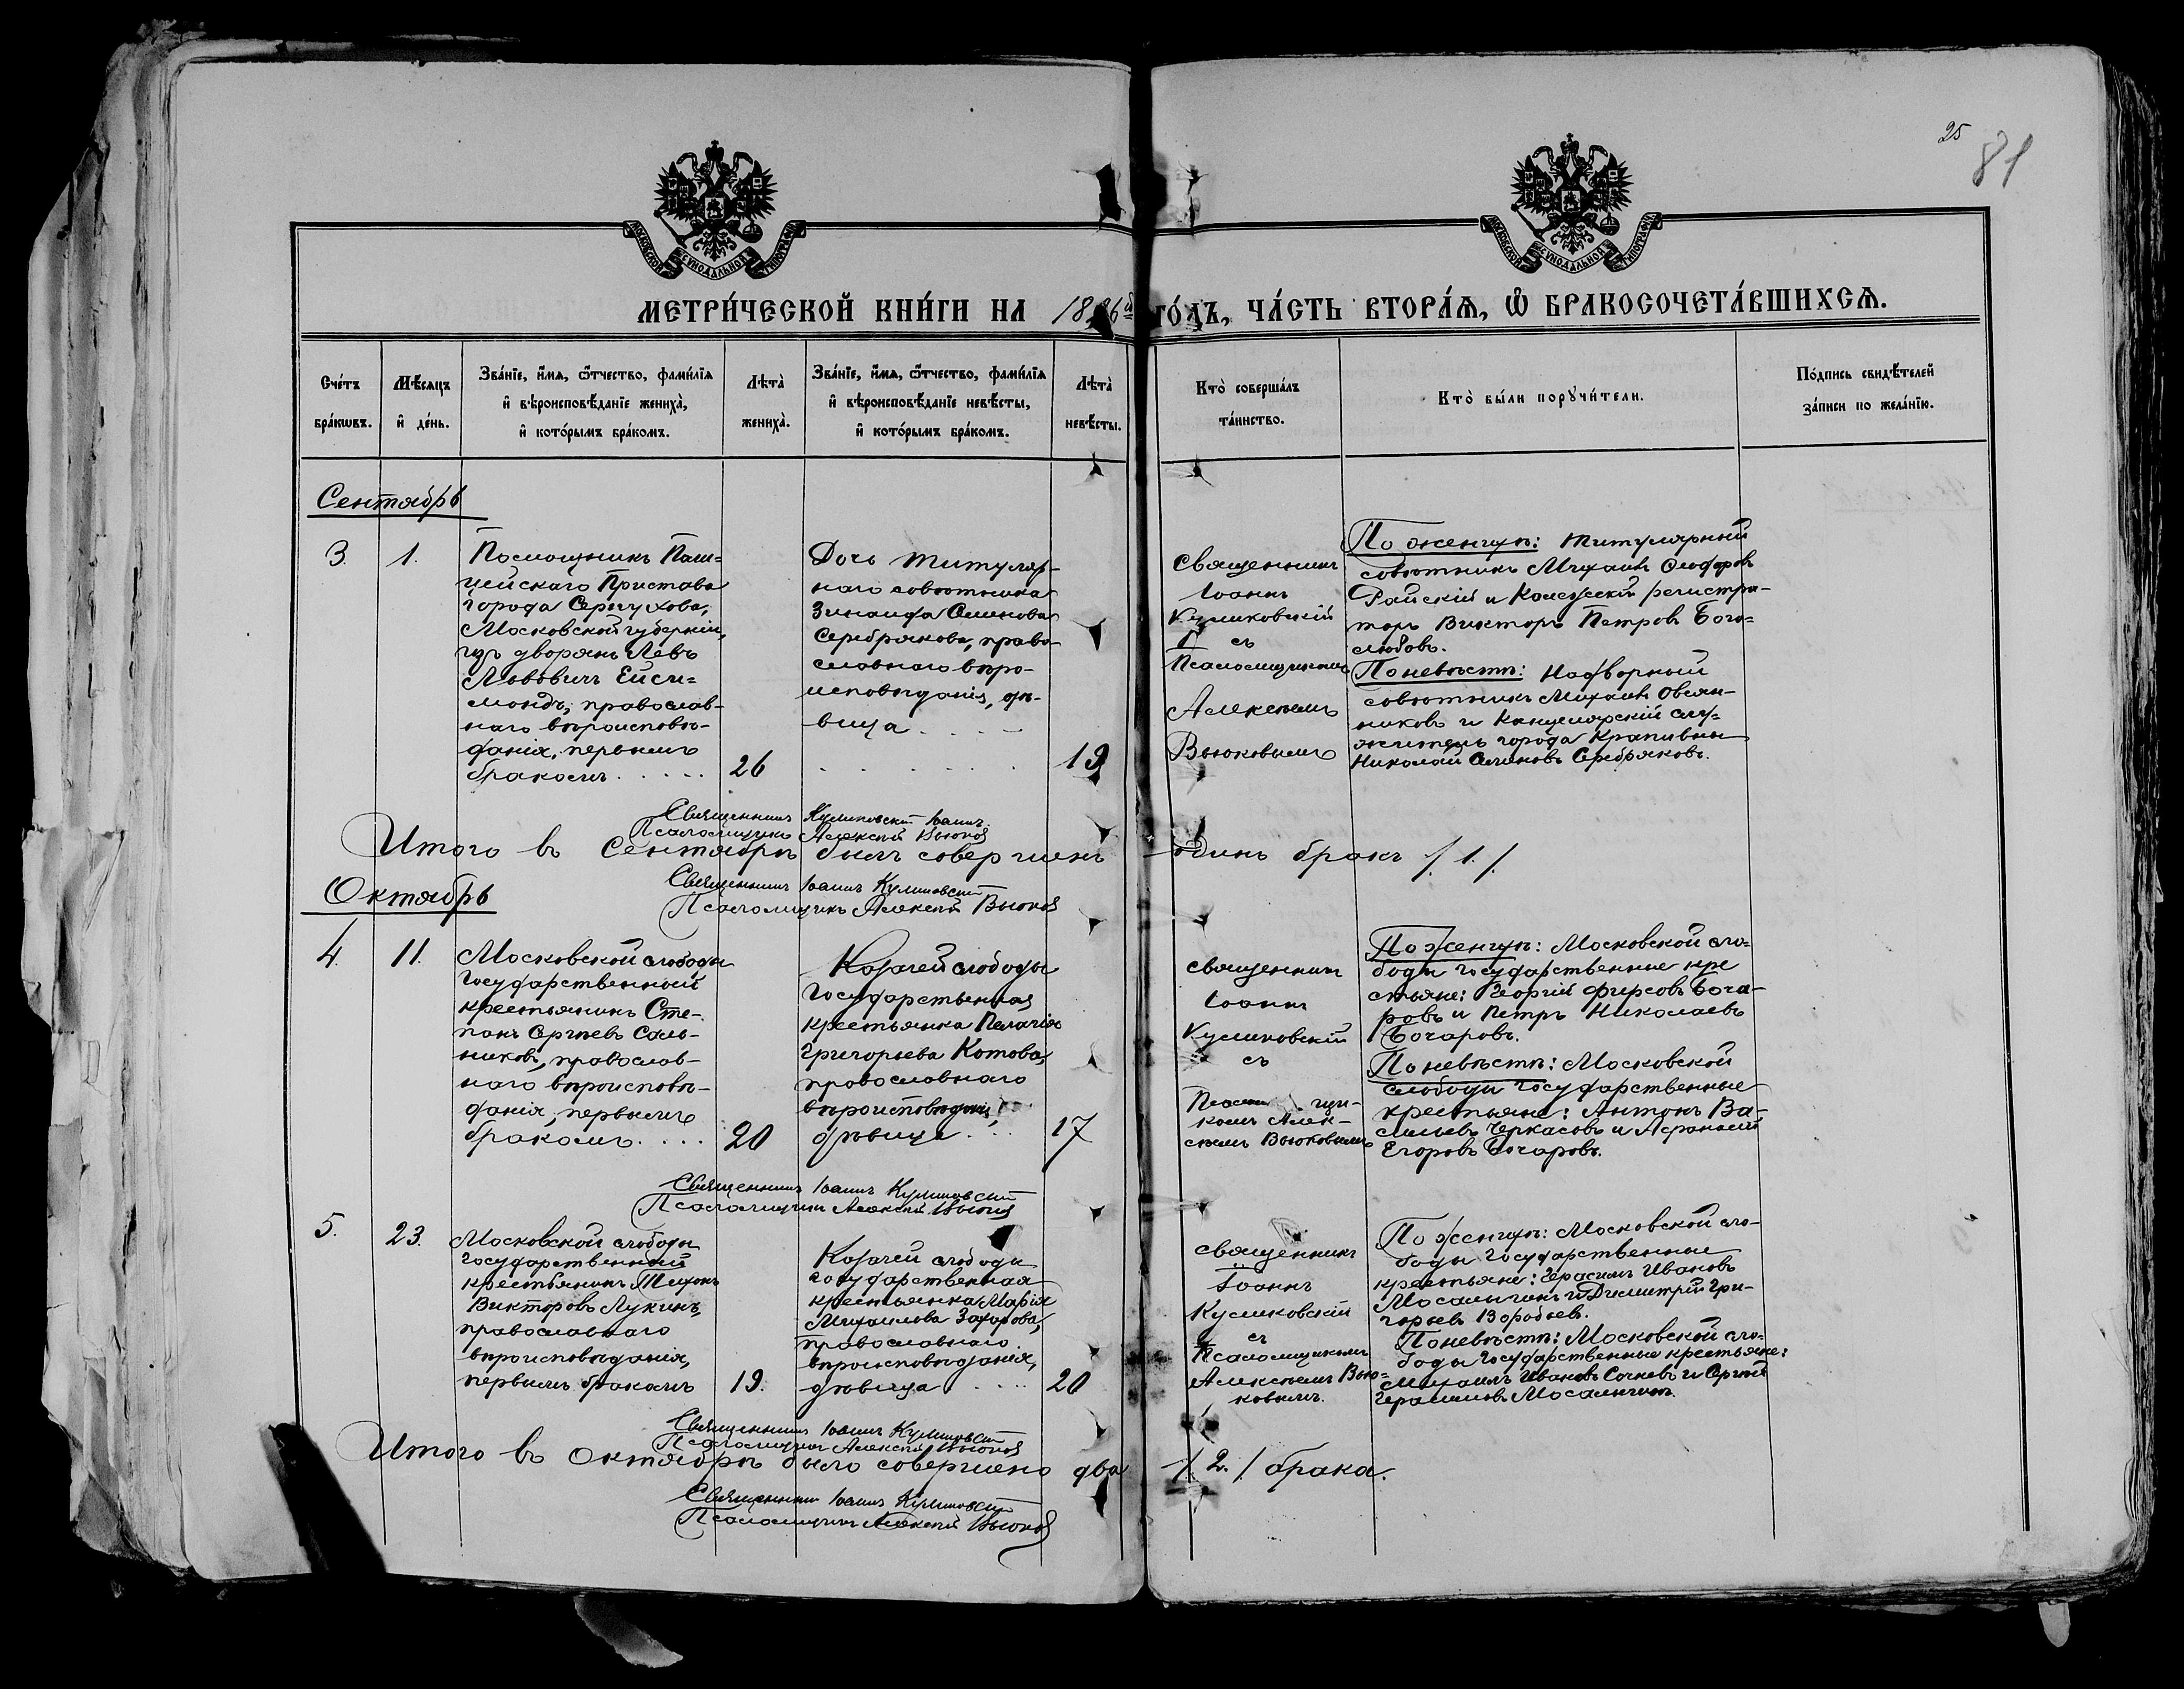 25
81
МОСКОВСКОЙ СУНОДАЛЬНОЙ ТИПОГРАФІИ
МОСКОВСКОЙ СУНОДАЛЬНОЙ ТИПОГРАФІИ
МЕТРИ́ЧЕСКОЙ КНИ́ГИ НА 18 6й ГО́ДЪ, ЧА́СТЬ ВТОРА́Я, Ѿ БРАКОСОЧЕТА́ВШИХСЯ.
Сче́тъ
бра́кѡвъ.
Мѣ́сяцъ
и҆ де́нь.
Зва́нїе, и҆́мя, ѻ҆́тчество, фами́лїя
и҆ вѣроисповѣ́данїе жениха̀,
и҆ кото́рымъ бра́комъ.
Лѣта̀
жениха̀.
Зва́нїе, и҆́мя, ѻ҆́тчество, фами́лїя
и҆ вѣроисповѣ́данїе невѣ́сты,
и҆ кото́рымъ бра́комъ.
Лѣта̀
невѣ́сты.
Кто̀ соверша́лъ
та́инство.
Кто̀ бы́ли порꙋчи́тели.
По́дпись свидѣ́телей
за́писи по жела́нїю.
Сентябрь
3.
1.
Помощникъ Поли-
цейскаго Пристава
города Серпухова,
Московской губерніи,
изъ дворянъ Левъ
Львовичъ Ейси-
мондъ, православ-
наго вѣроисповѣ-
данія, первымъ
бракомъ.....
26
Дочь титуляр-
наго совѣтника
Зинаида Семенова
Серебрякова, право-
славнаго вѣро-
исповѣданія, дѣ-
вица....
19
Священникъ
Іоаннъ
Куликовскій
съ
Псаломщикомъ
Алексѣемъ
Вьюковымъ
По женихѣ: титулярный
совѣтникъ Михаилъ Ѳеодоровъ
Райскій и Коллежскій регистра-
торъ Викторъ Петровъ Бого-
любовъ.
По невѣстѣ: Надворный
совѣтникъ Михаилъ Овсян-
никовъ и Канцелярскій слу-
житель города Крапивны
Николай Семеновъ Серебряковъ.
Священникъ Куликовскій Іоаннъ.
Псаломщикъ Алексѣй Вьюковъ
Итого въ Сентябрѣ былъ совершенъ одинъ бракъ /.1./.
Священникъ Іоаннъ Куликовскій
Псаломщикъ Алексѣй Вьюковъ
Октябрь
4.
11.
Московской слободы
Государственный
крестьянинъ Сте-
панъ Сергѣевъ Саль-
никовъ, православ-
наго вѣроисповѣ-
данія, первымъ
бракомъ....
20
Козачей слободы
Государственная
крестьянка Пелагія
Григорьева Котова,
православнаго
вѣроисповѣданія,
дѣвица...
17
Священникъ
Іоаннъ
Куликовскій
съ
комъ Алек-
сѣемъ Вьюковымъ
По женихѣ: Московской сло-
боды Государственные кре
стьяне: Георгій Фирсовъ Боча-
ровъ и Петръ Николаевъ
Бочаровъ.
По невѣстѣ: Московской
слободы Государственные
крестьяне: Антонъ Ва-
сильевъ Черкасовъ и Аѳанасій
Егоровъ Бочаровъ.
Священникъ Іоаннъ Куликовскій
Псаломщикъ Алексѣй Вьюковъ
5.
23.
Московской слободы
Государственный
крестьянинъ Тихонъ
Викторовъ Лукинъ,
православнаго
вѣроисповѣданія,
первымъ бракомъ
19.
Козачей слободы
государственная
крестьянка Марія
Михаилова Захарова,
православнаго
вѣроисповѣданія,
дѣвица....
20
Священникъ
Іоаннъ
Куликовскій
съ
Псаломщикомъ
Алексѣемъ Вью-
ковымъ.
По женихѣ: Московской сло-
боды Государственные
крестьяне: Герасимъ Ивановъ
Мосалыгинъ и Димитрій Гри-
горьевъ Воробьевъ.
По невѣстѣ: Московской сло-
боды Государственные крестьяне:
Михаилъ Ивановъ и Сергѣй
Герасимовъ Мосалыгинъ.
Священникъ Іоаннъ Куликовскій
Псаломщикъ Алексѣй Вьюковъ
Итого въ Октябрѣ было совершено два /.2./ брака.
Священникъ Іоаннъ Куликовскій
Псаломщикъ Алексѣй Вьюковъ